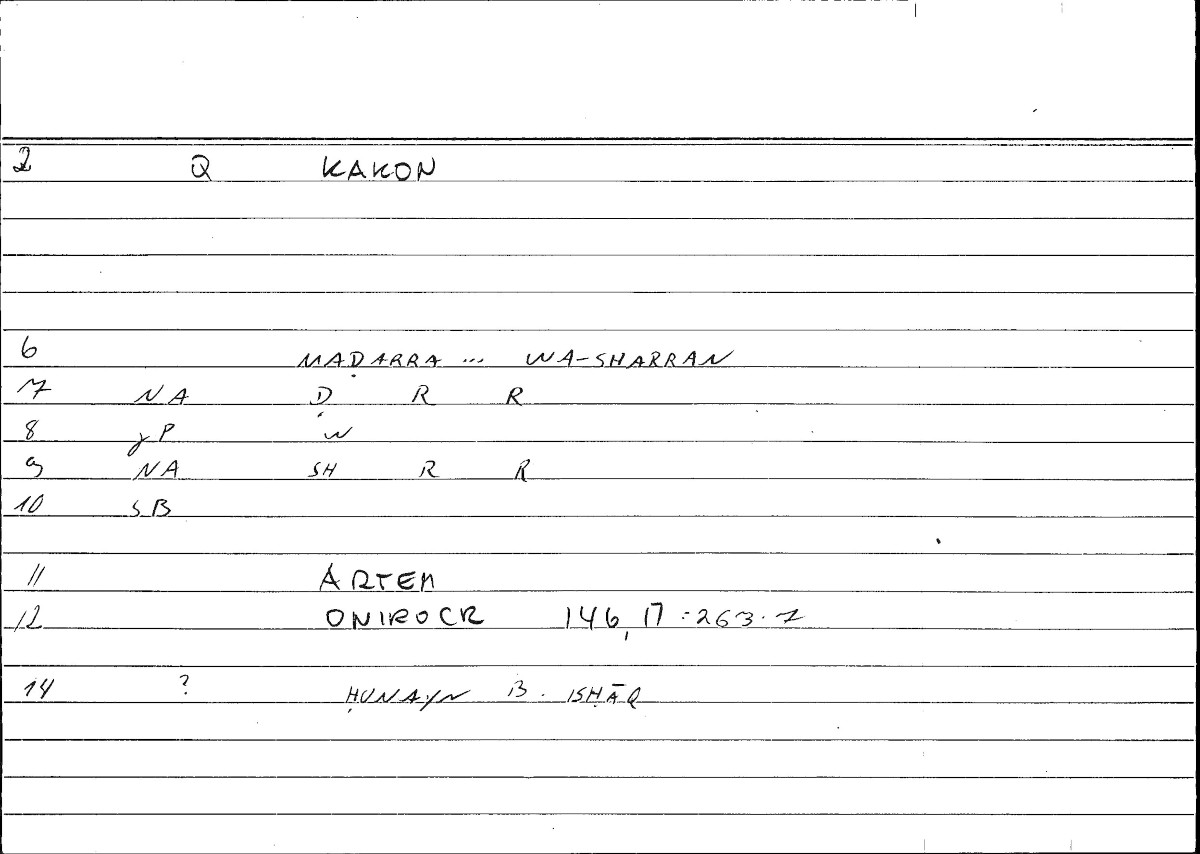 2 Q KAKON
6 MAḌARRA ... WA-SHARRAN
7 NA Ḍ R R
8 γP W
9 NA SH R R
10 SB
11 ARTEM
12 ONIROCR 146,17 : 263.7
14 ? ḤUNAYN B. ISḤĀQ